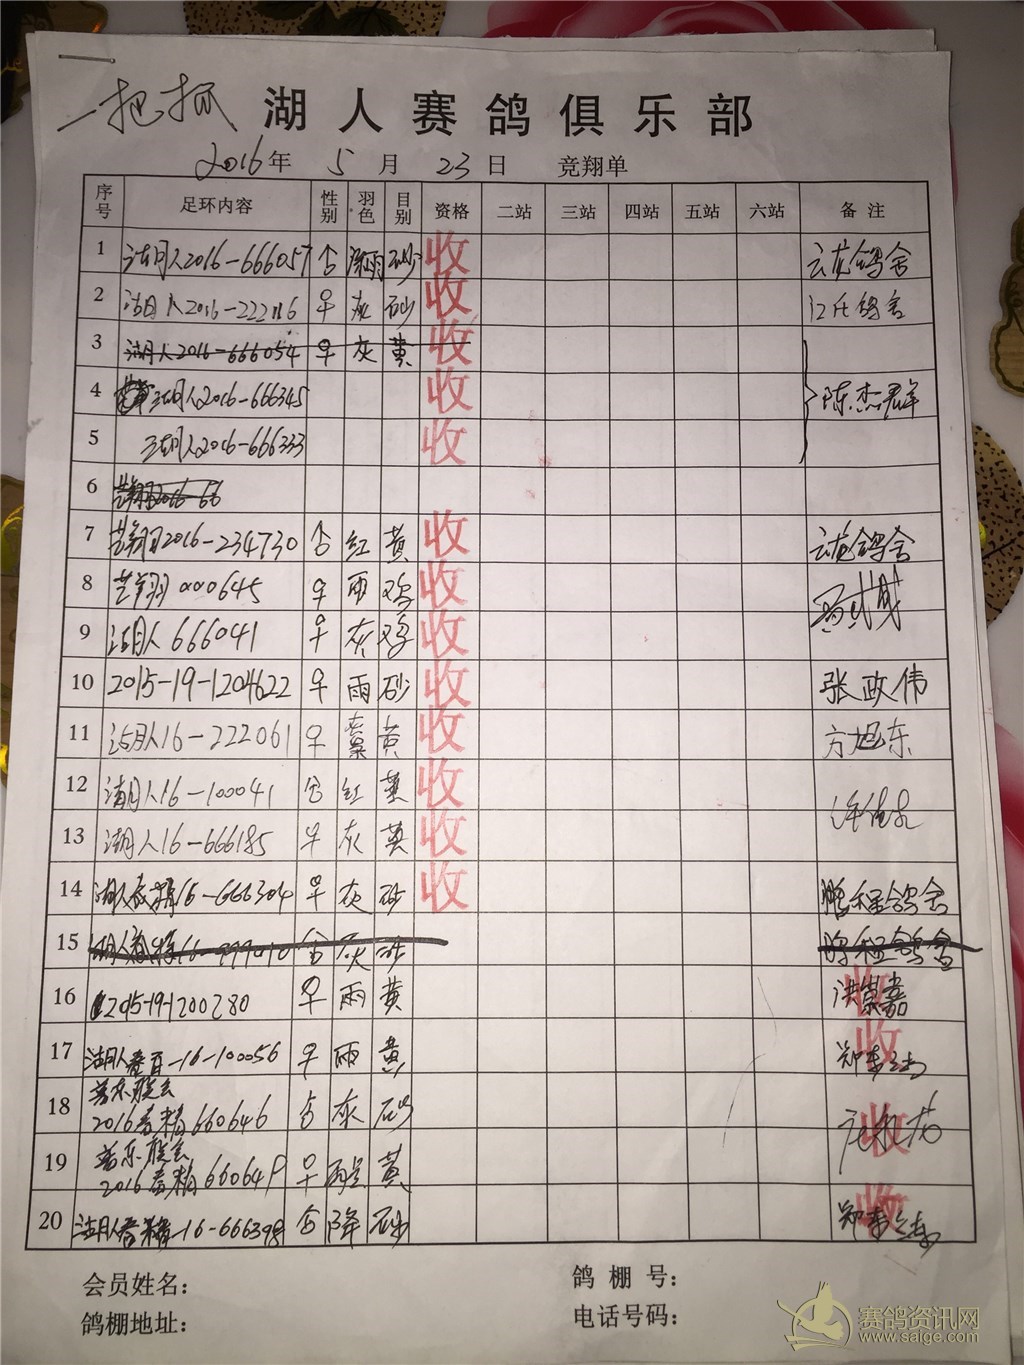 一把抓 湖人赛鸽俱乐部
2016年 5月 23日 竞翔单
序号 足环内容 性别 羽色 目别 资格 二站 三站 四站 五站 六站 备注
1 湖人2016-666057 雨 砂 收 云龙鸽舍
2 湖人2016-222116 ♀ 灰 砂 收 江氏鸽舍
3 湖人2016-666054 ♀ 灰 黄 收
4 湖人2016-666345 收 陈杰
5 湖人2016-666333 收
6 芸翔2016-66
7 芸翔2016-234730 红 黄 收 云龙鸽舍
8 芸翔 000645 ♀ 雨 鸡 收
9 湖人 666041 ♀ 灰 鸡 收
10 2015-19-1204622 ♀ 雨 砂 收 张政伟
11 湖人16-222061 ♀ 黄 收 方旭东
12 湖人16-100041 红 黄 收
13 湖人16-666185 ♀ 灰 黄 收
14 湖人春精16-666304 ♀ 灰 砂 收 鹏程鸽舍
15 湖人春精16-999010 灰 砂 鹏程鸽舍
16 2015-19-1200280 ♀ 雨 黄 洪崇嘉 收
17 湖人春百-16-100056 ♀ 雨 黄 收
18 普东联合
2016春精660646 灰 砂 收
19 普东联合
2016春精660649 ♀ 黄
20 湖人春精-16-666398 降 砂 收
会员姓名： 鸽棚号：
鸽棚地址： 电话号码：
赛鸽资讯网
www.saige.com